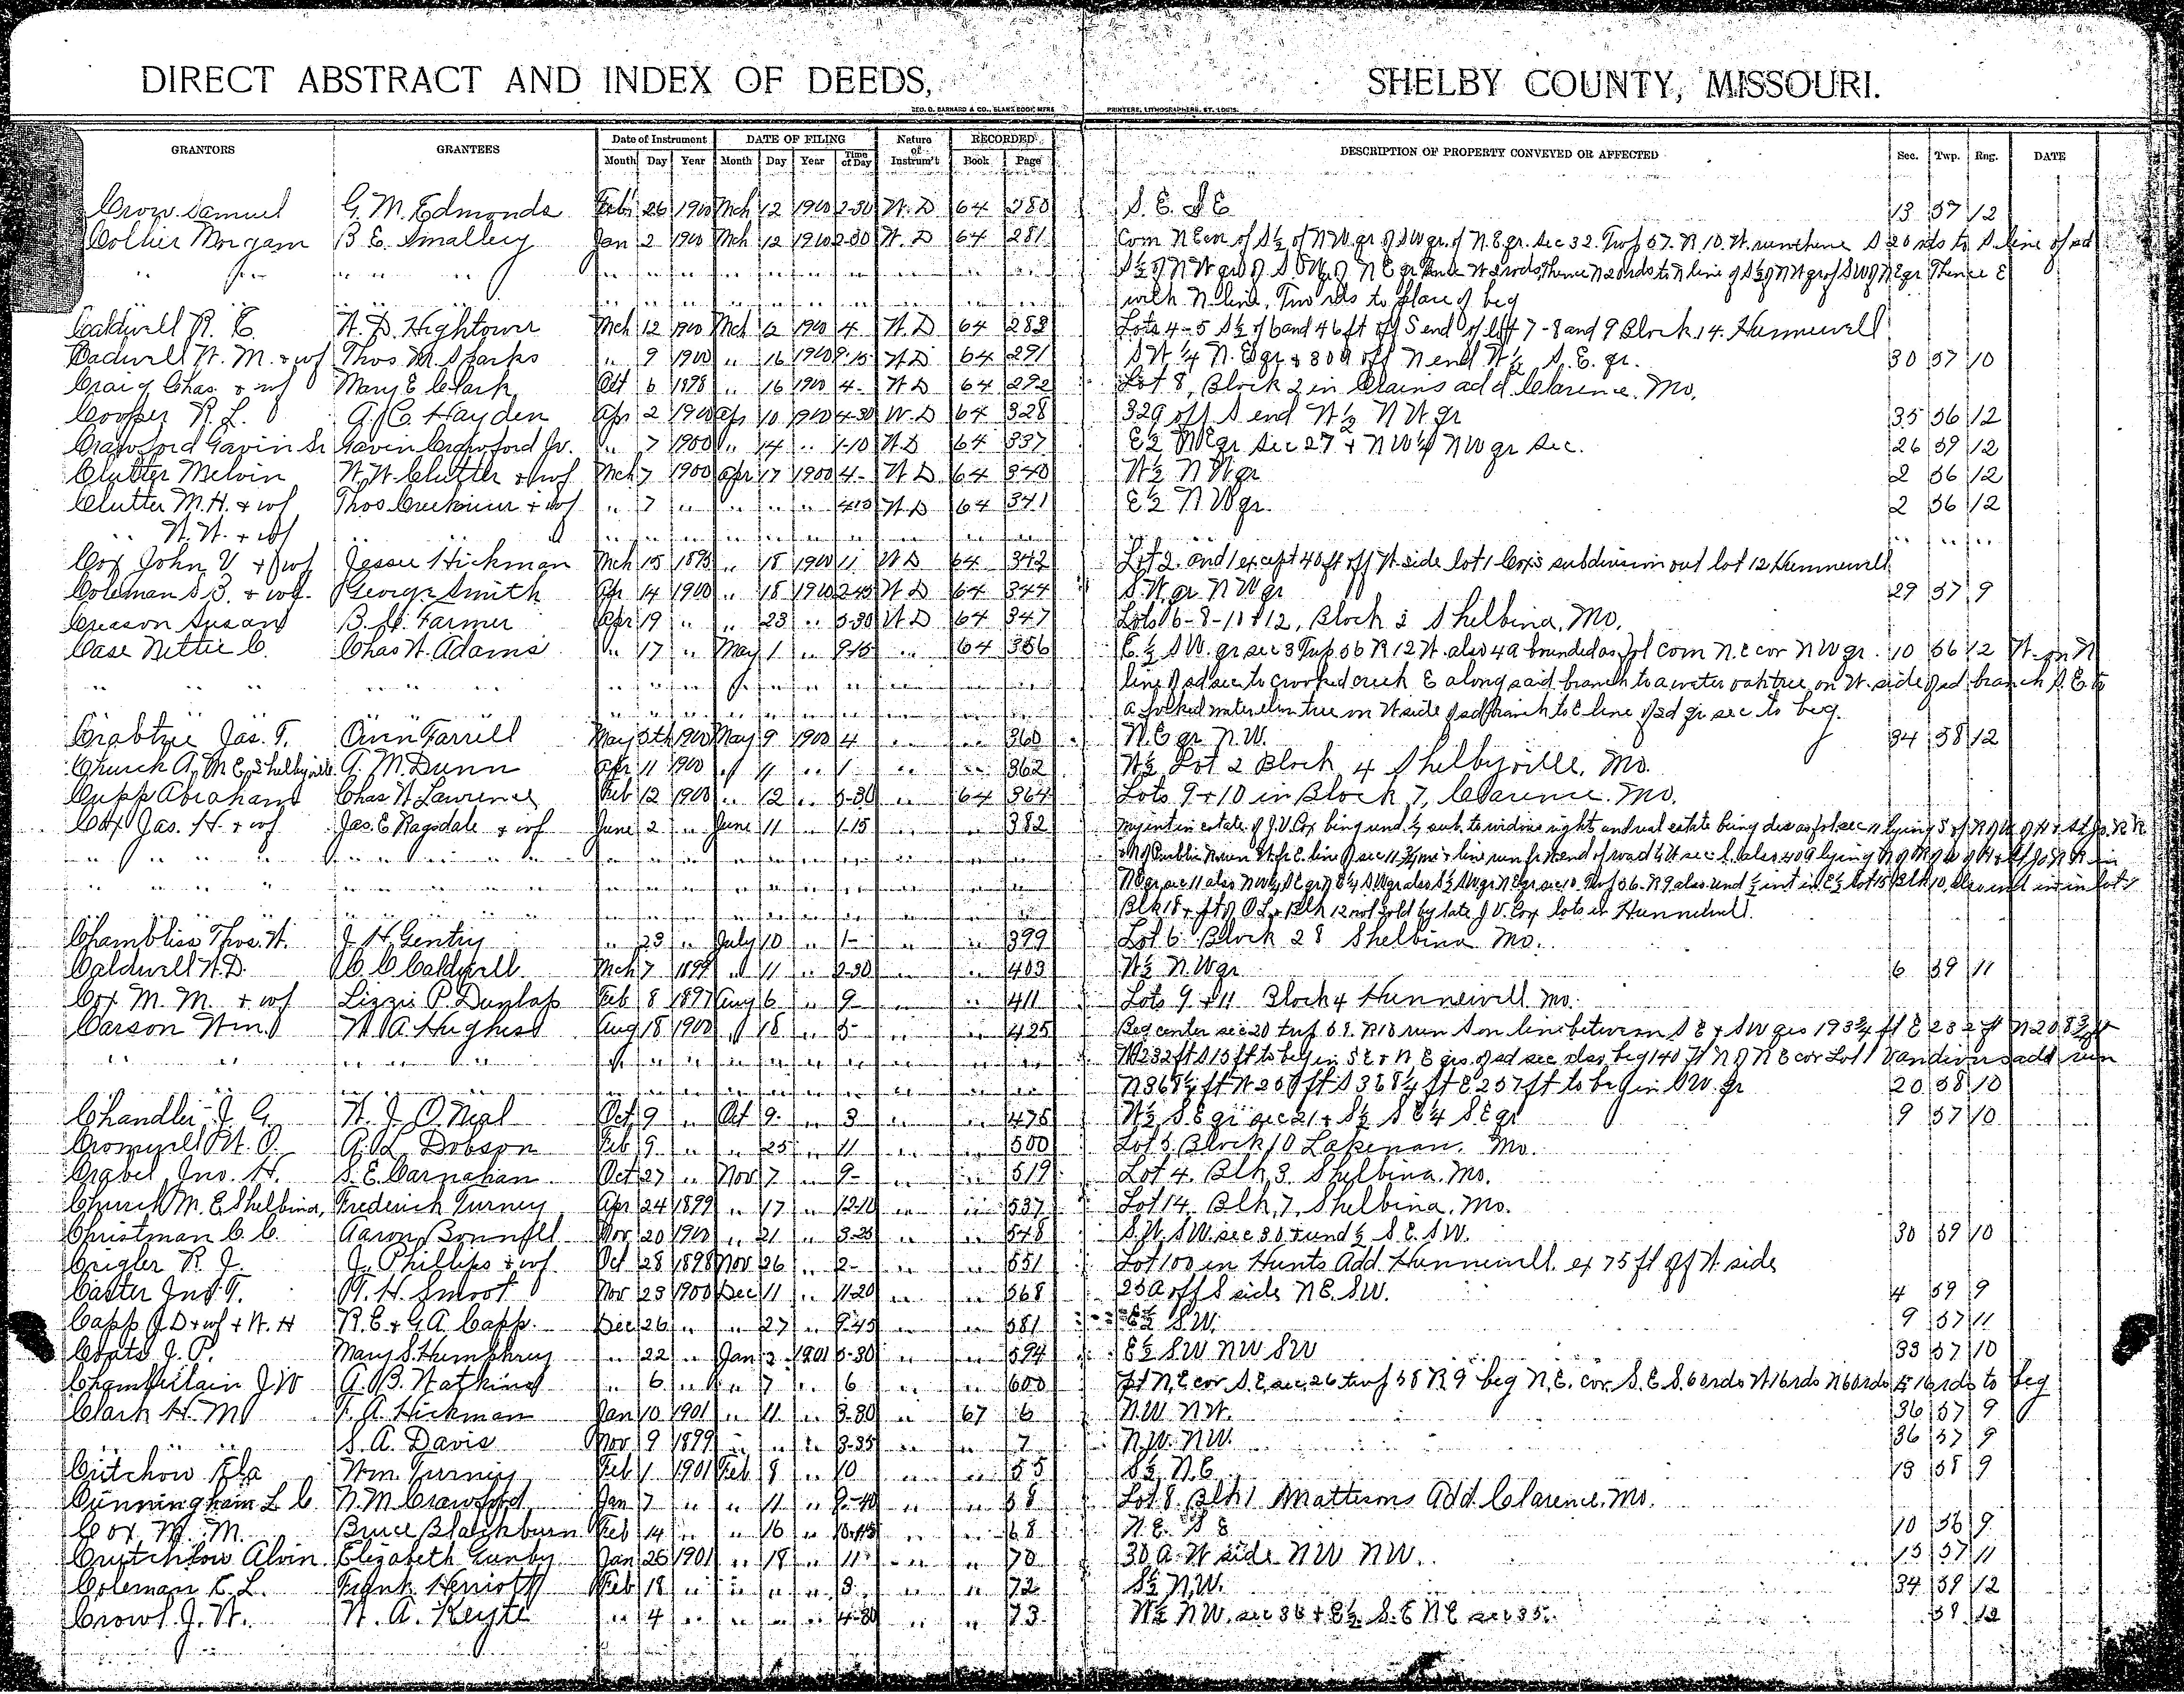 DIRECT ABSTRACT AND INDEX OF DEEDS, SHELBY COUNTY, MISSOURI.
GEO. D. BARNARD & CO., BLANK BOOK MFRS PRINTERS, LITHOGRAPHERS, ST. LOUIS.
GRANTORS GRANTEES Date of Instrument DATE OF FILING Nature of Instrum't RECORDED DESCRIPTION OF PROPERTY CONVEYED OR AFFECTED Sec. Twp. Rng. DATE
Month Day Year Month Day Year Time of Day Book Page
Crow Samuel G. M. Edmonds Feb 26 1900 Mch 12 1900 2-30 W. D 64 280 S. E. S E 13 57 12
Collier Morgan B E. Smalley Jan 2 1900 Mch 12 1900 2-30 W. D 64 281 Com N E cor of S½ of N W qr of S W qr of N. E qr. Sec 32. Twp 57. R 10. W. run thence S 20 rds to S. line of sd
" " " " S½ of N W qr of S W of N E qr thence W 2 rods, Thence N 20 rds to N line of S½ of N W qr of S W of N E qr Thence E
with N line, Two rds to place of beg
Caldwell R. E. W. D. Hightower Mch 12 1900 Mch 12 1900 4 W. D 64 283 Lots 4-5 S½ of 6 and 46 ft off S end of lot 7-8 and 9 Block 14. Hunnewell
Cadwell W. M. + wf Thos M. Sparks " 9 1900 " 16 1900 9-15 W D 64 291 S W ¼ N. E qr + 30 a off N end W ½ S. E. qr. 30 57 10
Craig Chas. + wf Mary E Clark Oct 6 1898 " 16 1900 4- W D 64 292 Lot 8, Block 2 in Crains add Clarence. Mo.
Cooper R. L. A. C. Hayden Apr 2 1900 Apr 10 1900 4-30 W. D 64 328 32a off S end W ½ N W qr 35 56 12
Crawford Gavin Sr Gavin Crawford Jr. " 7 1900 " 14 " 1-10 W D 64 337 E½ N E qr Sec 27 + N W ¼ N W qr Sec. 26 59 12
Clutter Melvin W. W. Clutter + wf Mch 7 1900 Apr 17 1900 4- W D 64 340 W½ N W qr 2 56 12
Clutter M. H. + wf Thos + wf " 7 " " " " 4-15 W. D 64 341 E½ N W qr. 2 56 12
" W. W. + wf " " "
Cox John V + wf Jesse Hickman Mch 15 1895 " 18 1900 11 W D 64 342 Lot 2. and 1 except 40 ft off W side lot 1 Cox's subdivision out lot 12 Hunnewell
Coleman S B. + wf. George Smith Apr 14 1900 " 18 1900 2-45 W D 64 344 S. W. qr N W qr 29 57 9
Creason Susan B. C. Farmer Apr 19 " " 23 " 5-30 W D 64 347 Lots 6-8-10 + 12, Block 3 Shelbina, Mo.
Case Nettie C. Chas W. Adams " 17 " May 1 " 9-15 " 64 356 E. ½ S W. qr sec 3 Twp 56 R 12 W. also 4a bounded as fol com N. E cor N W qr. 10 56 12 W. on N
" " " " line of sd sec to crooked creek E along said branch to a water oak tree on W. side of sd branch S. E. to
a forked water elm tree on W side of sd branch to E line of sd qr sec to beg.
Crabtree Jas. T. Owen Farrell May 5th 1900 May 9 1900 4 " " 360 N. E qr N. W. 34 58 12
Church A. M E, Shelbyville. A. M. Dunn Apr 11 1900 " 11 " 1 " " 362 W½ Lot 2 Block 4 Shelbyville, Mo.
Cupp Abraham Chas W Lawrence Feb 12 1900 " 12 " 5-30 " 64 364 Lots 9 + 10 in Block 7, Clarence. Mo.
Cox Jas. H. + wf Jas. E Ragsdale + wf June 2 " June 11 " 1-15 " " 382 my int in estate of J. V. Cox being und. ½ sub. to widows right and real estate being des as fol. sec 11 lying S of R of W of H + St Jo. R R
" " " "
" " " "
Blk 18 + pt of O L + Blk 12 not sold by late J V. Cox lots in Hunnewell.
Chambliss Thos. W. J H Gentry " 23 " July 10 " 1- " " 399 Lot 6 Block 28 Shelbina Mo.
Caldwell W. D. C. C Caldwell. Mch 7 1899 " 11 " 2-30 " " 403 W½ N. W qr 6 59 11
Cox M. M. + wf Lizzie P. Dunlap Feb 8 1897 Aug 6 " 9 " " 411 Lots 9 + 11 Block 4 Hunnewell. Mo.
Carson Wm. W. A Hughes Aug 18 1900 " 18 " 5- " " 425 Beg center sec 20 twp 58. R 10 run S on line between S E + S W qrs 193¾ ft E 232 ft N 208¾ ft
" " " " W 232 ft S 15 ft to beg in S E + N. E qrs. of sd sec also beg 140 ft N of N E cor Lot 1 Vandivers add run
N 368¼ ft W 257 ft S 368¼ ft E 257 ft to beg in S W. qr 20 58 10
Chandler J. G. W. J. O. Neal Oct 9 " Oct 9 " 3 " " 475 W½ S. E qr sec 21 + S½ S E ¼ S E qr 9 57 10
Cromwell W. O. A. L. Dobson Feb 9 " " 25 " 11 " " 500 Lot 5 Block 10 Lakenan. Mo.
Crabel Jno. H. S. E. Carnahan Oct 27 " Nov 7 " 9- " " 519 Lot 4. Blk, 3. Shelbina. Mo.
Church M. E Shelbina, Frederick Turney Apr 24 1899 " 17 " 12-10 " " 537 Lot 14. Blk, 7, Shelbina, Mo.
Christman C. C. Aaron Bonnfell Nov 20 1900 " 21 " 3-25 " " 548 S. W. S W. sec 30 + und ½ S. E. S W. 30 59 10
Crigler R. J. J. Phillips + wf Oct 28 1898 Nov 26 " 2- " " 551 Lot 100 in Hunts Add. Hunnewell. ex 75 ft off W. side
Carter Jno. T. W. H. Smoot Nov 23 1900 Dec 11 " 11-20 " " 568 25 a off S side N E. S W. 4 59 9
Capp J. D + wf + W. H R. E + G. A. Capp. Dec 26 " " 27 " 9-45 " " 581 E½ S W. 9 57 11
Coats J. P. Mary S. Humphrey " 22 " Jan 2 1901 5-30 " " 594 E½ S W N W S W 33 57 10
Chamberlain J W A. B. Watkins " 6 " " 7 " 6 " " 600 pt N. E cor S. E. sec. 26 twp 58 R 9 beg N. E. cor. S. E S. 60 rds W 16 rds N 60 rds E 16 rds to beg
Clark H. M. F. A. Hickman Jan 10 1901 " 11 " 3-30 " 67 6 N. W N W. 36 57 9
" " S. A. Davis Nov 9 1899 " " " 3-35 " " 7 N. W. N W. 36 57 9
Critchow Wm. Turney Feb 1 1901 Feb 8 " 10 " " 55 S½ N. E 13 58 9
Cunningham L C N. M. Crawford Jan 7 " " 11 " " " 58 Lot 8. Blk 1 Mattisons Add. Clarence, Mo.
Cox M. M. Bruce Blackburn Feb 14 " " 16 " 10-45 " " 68 N. E. S E 10 56 9
Crutchlow Alvin Elizabeth Gunby Jan 26 1901 " 18 " 11 " " 70 30 a. W side N W N W. 15 57 11
Coleman E. L. Frank Herriott Feb 18 " " " " 3 " " 72 S½ N. W. 34 59 12
Crowl J. W. W. A. Keyte " 4 " " " " 4-30 " " 73 W½ N W. sec 36 + E½ S. E N E sec 35. 58 12